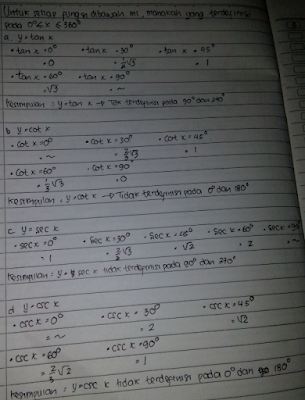 Untuk setiap fungsi dibawah ini, manakah yang terdefinisi
pada 0° ≤ x ≤ 360°
a. y = tan x
• tan x = 0° • tan x = 30° • tan x = 45°
= 0 = 1/3 √3 = 1
• tan x = 60° • tan x = 90°
= √3 = ~
Kesimpulan : y = tan x → Tdk terdefinisi pada 90° dan 270°
b. y = cot x
• cot x = 0° • cot x = 30° • cot x = 45°
= ~ = √3 = 1
• cot x = 60° • cot x = 90°
= 1/3 √3 = 0
Kesimpulan : y = cot x → Tidak terdefinisi pada 0° dan 180°
c. y = sec x
• sec x = 0° • sec x = 30° • sec x = 45° • sec x = 60° • sec x = 90°
= 1 = 2/3 √3 = √2 = 2 = ~
Kesimpulan : y = sec x tidak terdefinisi pada 90° dan 270°
d. y = csc x
• csc x = 0° • csc x = 30° • csc x = 45°
= ~ = 2 = √2
• csc x = 60° • csc x = 90°
= 2/3 √2 = 1
Kesimpulan : y = csc x tidak terdefinisi pada 0° dan 180°